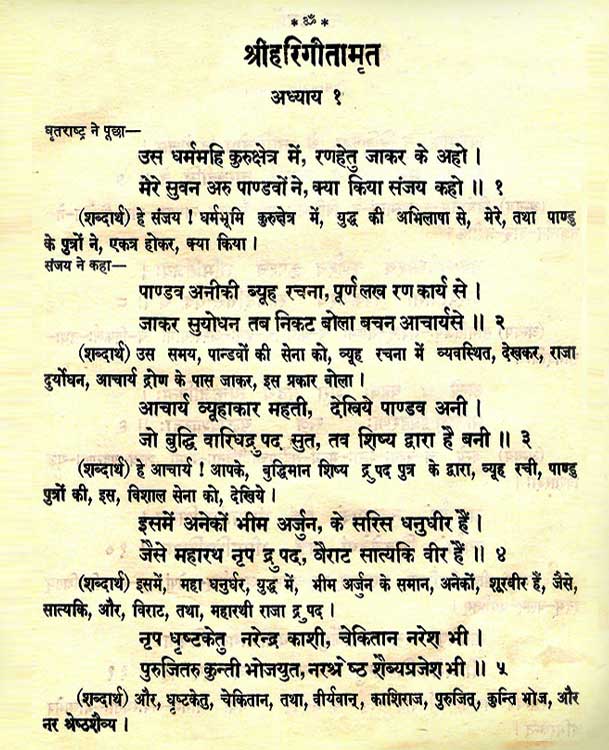 * ॐ *
श्रीहरिगीतामृत
अध्याय १
धृतराष्ट्र ने पूछा—
उस धर्ममहि कुरुक्षेत्र में, रणहेतु जाकर के अहो ।
मेरे सुवन अरु पाण्डवों ने, क्या किया संजय कहो ॥ १
(शब्दार्थ) हे संजय ! धर्मभूमि कुरुक्षेत्र में, युद्ध की अभिलाषा से, मेरे, तथा पाण्डु
के पुत्रों ने, एकत्र होकर, क्या किया ।
संजय ने कहा—
पाण्डव अनीकी ब्यूह रचना, पूर्ण लख रण कार्य से ।
जाकर सुयोधन तब निकट बोला बचन आचार्यसे ॥ २
(शब्दार्थ) उस समय, पान्डवों की सेना को, व्यूह रचना में व्यवस्थित, देखकर, राजा
दुर्योधन, आचार्य द्रोण के पास जाकर, इस प्रकार बोला ।
आचार्य व्यूहाकार महती, देखिये पाण्डव अनी ।
जो बुद्धि वारिधद्रुपद सुत, तव शिष्य द्वारा है बनी ॥ ३
(शब्दार्थ) हे आचार्य ! आपके, बुद्धिमान शिष्य द्रुपद पुत्र के द्वारा, व्यूह रची, पाण्डु
पुत्रों की, इस, विशाल सेना को, देखिये ।
इसमें अनेकों भीम अर्जुन, के सरिस धनुधीर हैं ।
जैसे महारथ नृप द्रुपद, वैराट सात्यकि वीर हैं ॥ ४
(शब्दार्थ) इसमें, महा धनुर्धर, युद्ध में, भीम अर्जुन के समान, अनेकों, शूरवीर हैं, जैसे,
सात्यकि, और, विराट, तथा, महारथी राजा द्रुपद ।
नृप धृष्टकेतु नरेन्द्र काशी, चेकितान नरेश भी ।
पुरुजितरु कुन्ती भोजयुत, नरश्रेष्ठ शैब्यप्रजेश भी ॥ ५
(शब्दार्थ) और, धृष्टकेतु, चेकितान, तथा, वीर्यवान्, काशिराज, पुरुजित्, कुन्ति भोज, और
नर श्रेष्ठशैव्य ।